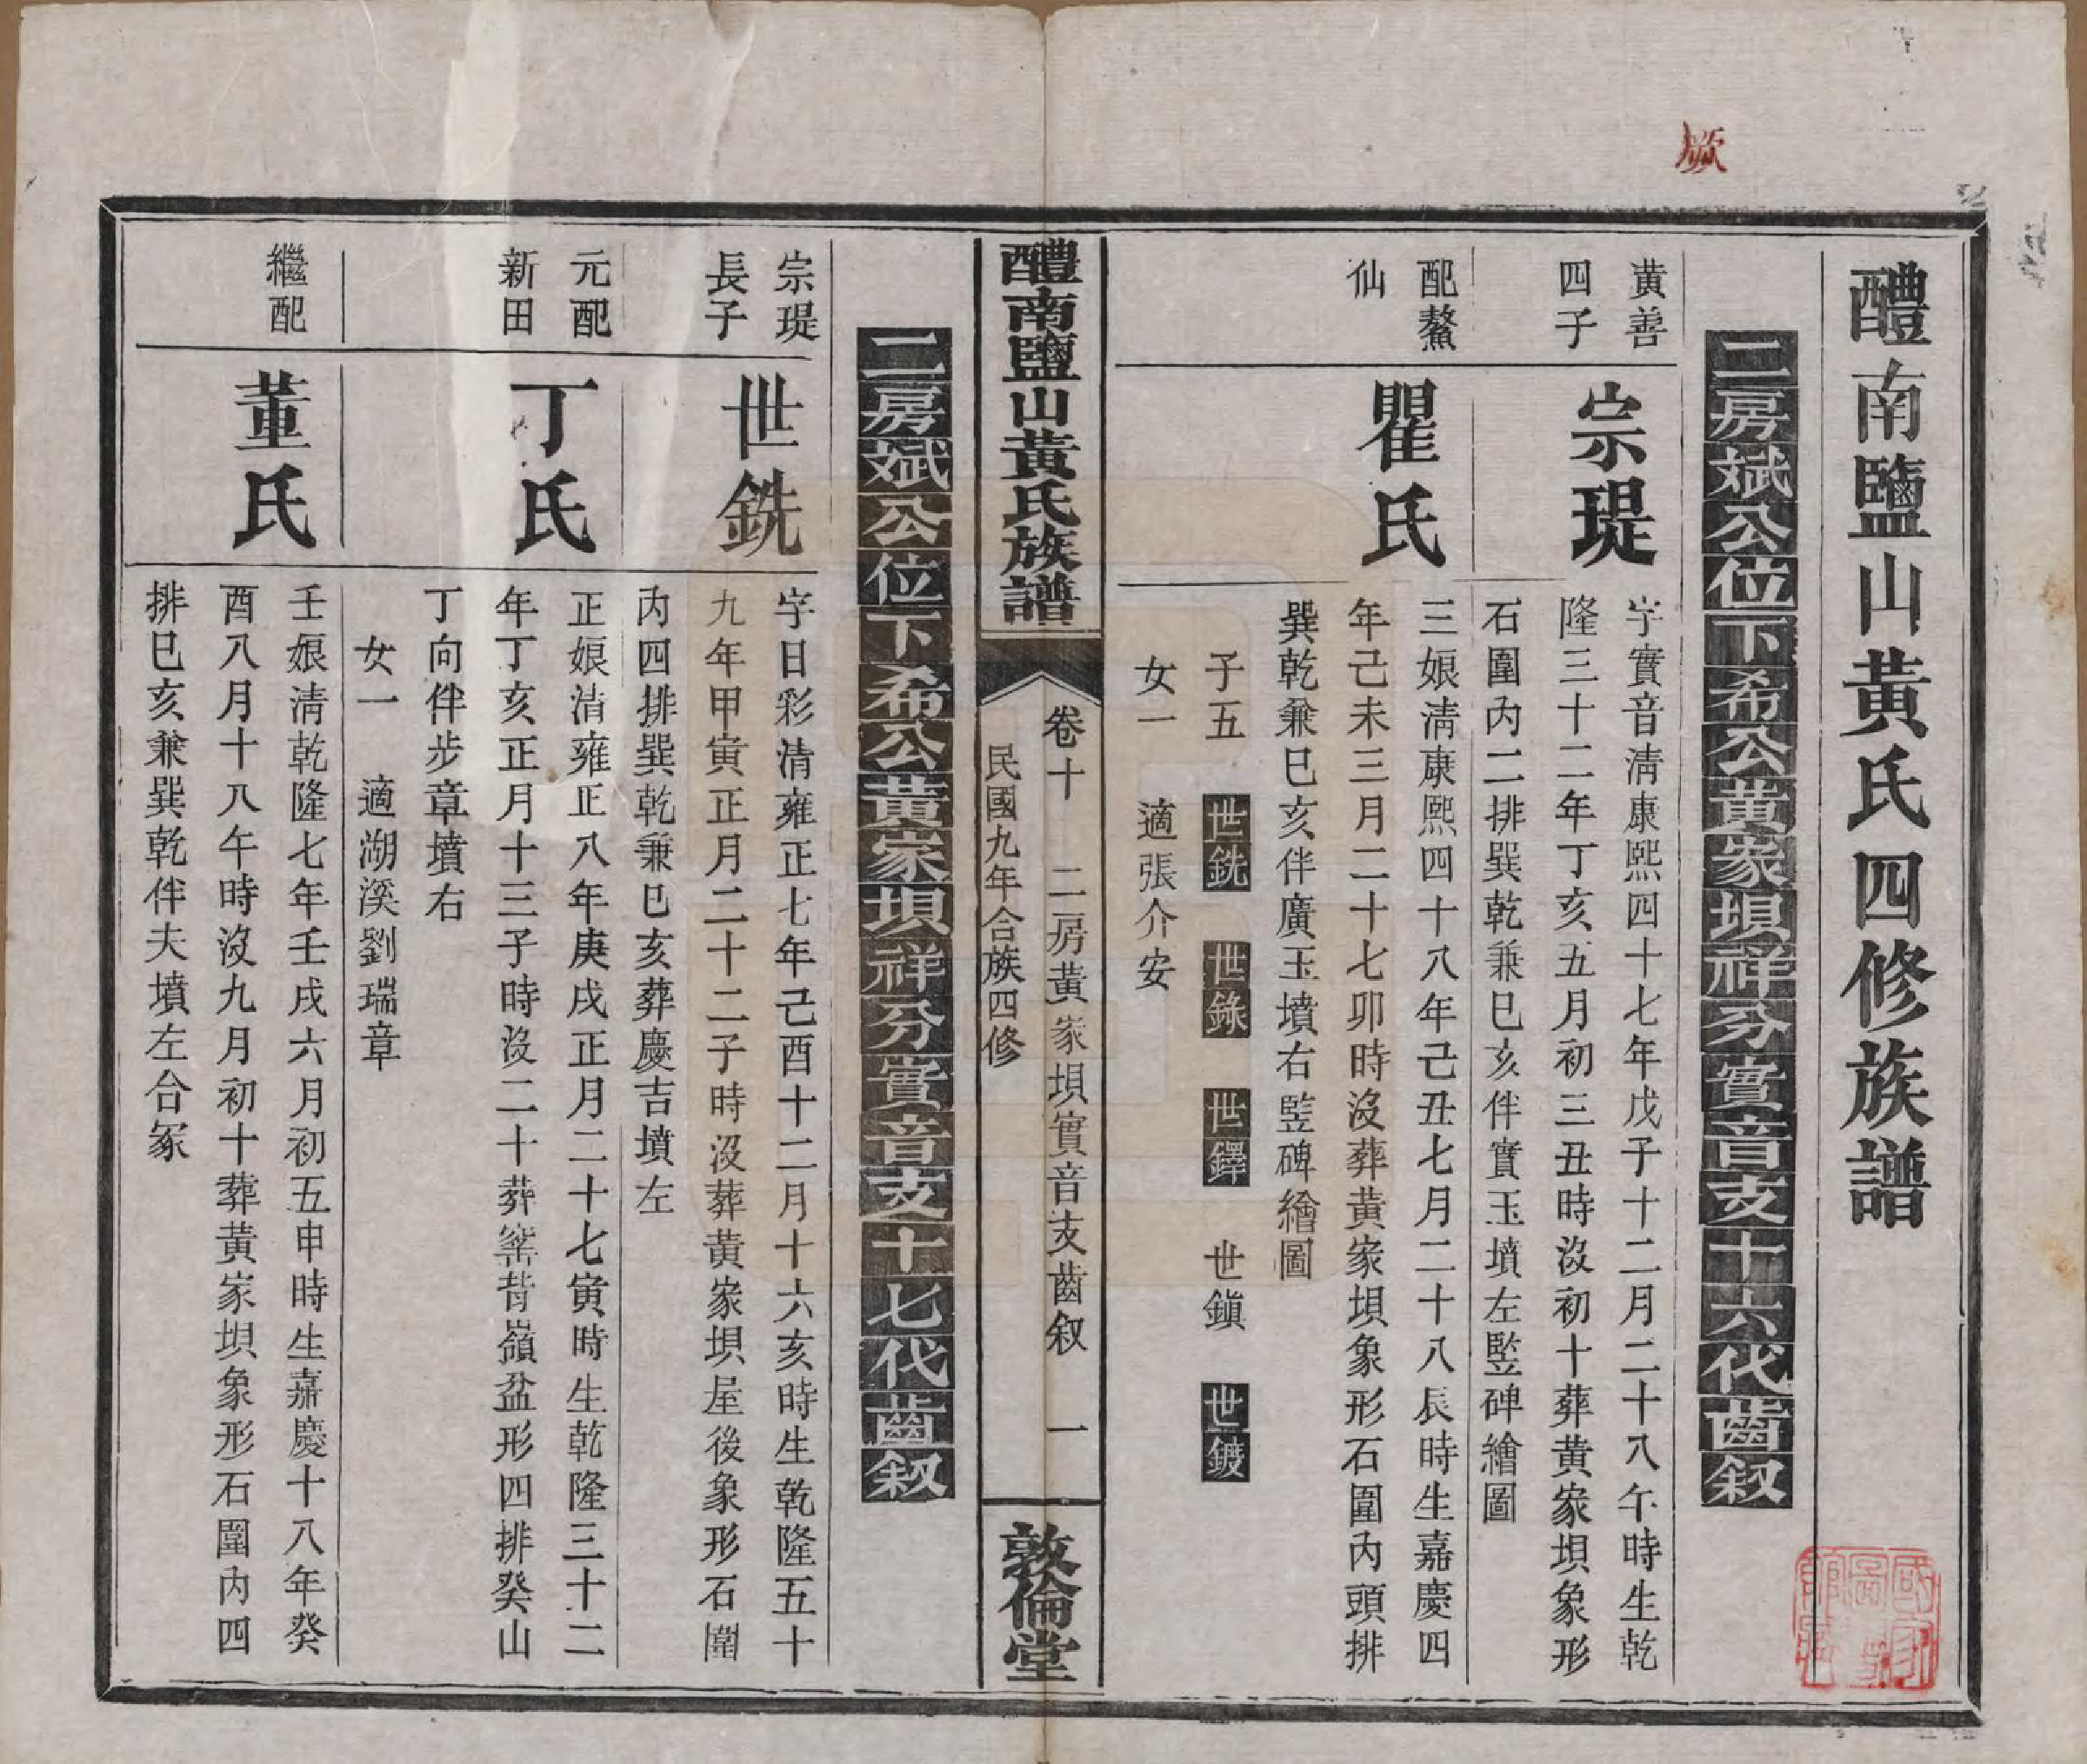 醴南鹽山黃氏四修族譜
二房斌公位下希公黃家垻祥分實音支十六代齒叙
黃善
四子
宗瑅
字實音清康熙四十七年戊子十二月二十八午時生乾
隆三十二年丁亥五月初三丑時沒初十葬黃家垻象形
石圍內二排巽乾兼巳亥伴實玉墳左豎碑繪圖
配鰲
仙
瞿氏
三娘清康熙四十八年己丑七月二十八辰時生嘉慶四
年己未三月二十七卯時沒葬黃家垻象形石圍內頭排
巽乾兼巳亥伴廣玉墳右豎碑繪圖
子五 世銑 世錄 世鐸 世鎮 世鍍
女一 適張介安
醴南鹽山黃氏族譜
卷十 二房黃家垻實音支齒叙 一
民國九年合族四修
敦倫堂
二房斌公位下希公黃家垻祥分實音支十七代齒叙
宗瑅
長子
世銑
字日彩清雍正七年己酉十二月十六亥時生乾隆五十
九年甲寅正月二十二子時沒葬黃家垻屋後象形石圍
內四排巽乾兼巳亥葬慶吉墳左
元配
新田
丁氏
正娘清雍正八年庚戌正月二十七寅時生乾隆三十二
年丁亥正月十三子時沒二十葬窰背嶺盆形四排癸山
丁向伴步章墳右
女一 適湖溪劉瑞章
繼配
董氏
壬娘清乾隆七年壬戌六月初五申時生嘉慶十八年癸
酉八月十八午時沒九月初十葬黃家垻象形石圍內四
排巳亥兼巽乾伴夫墳左合冢